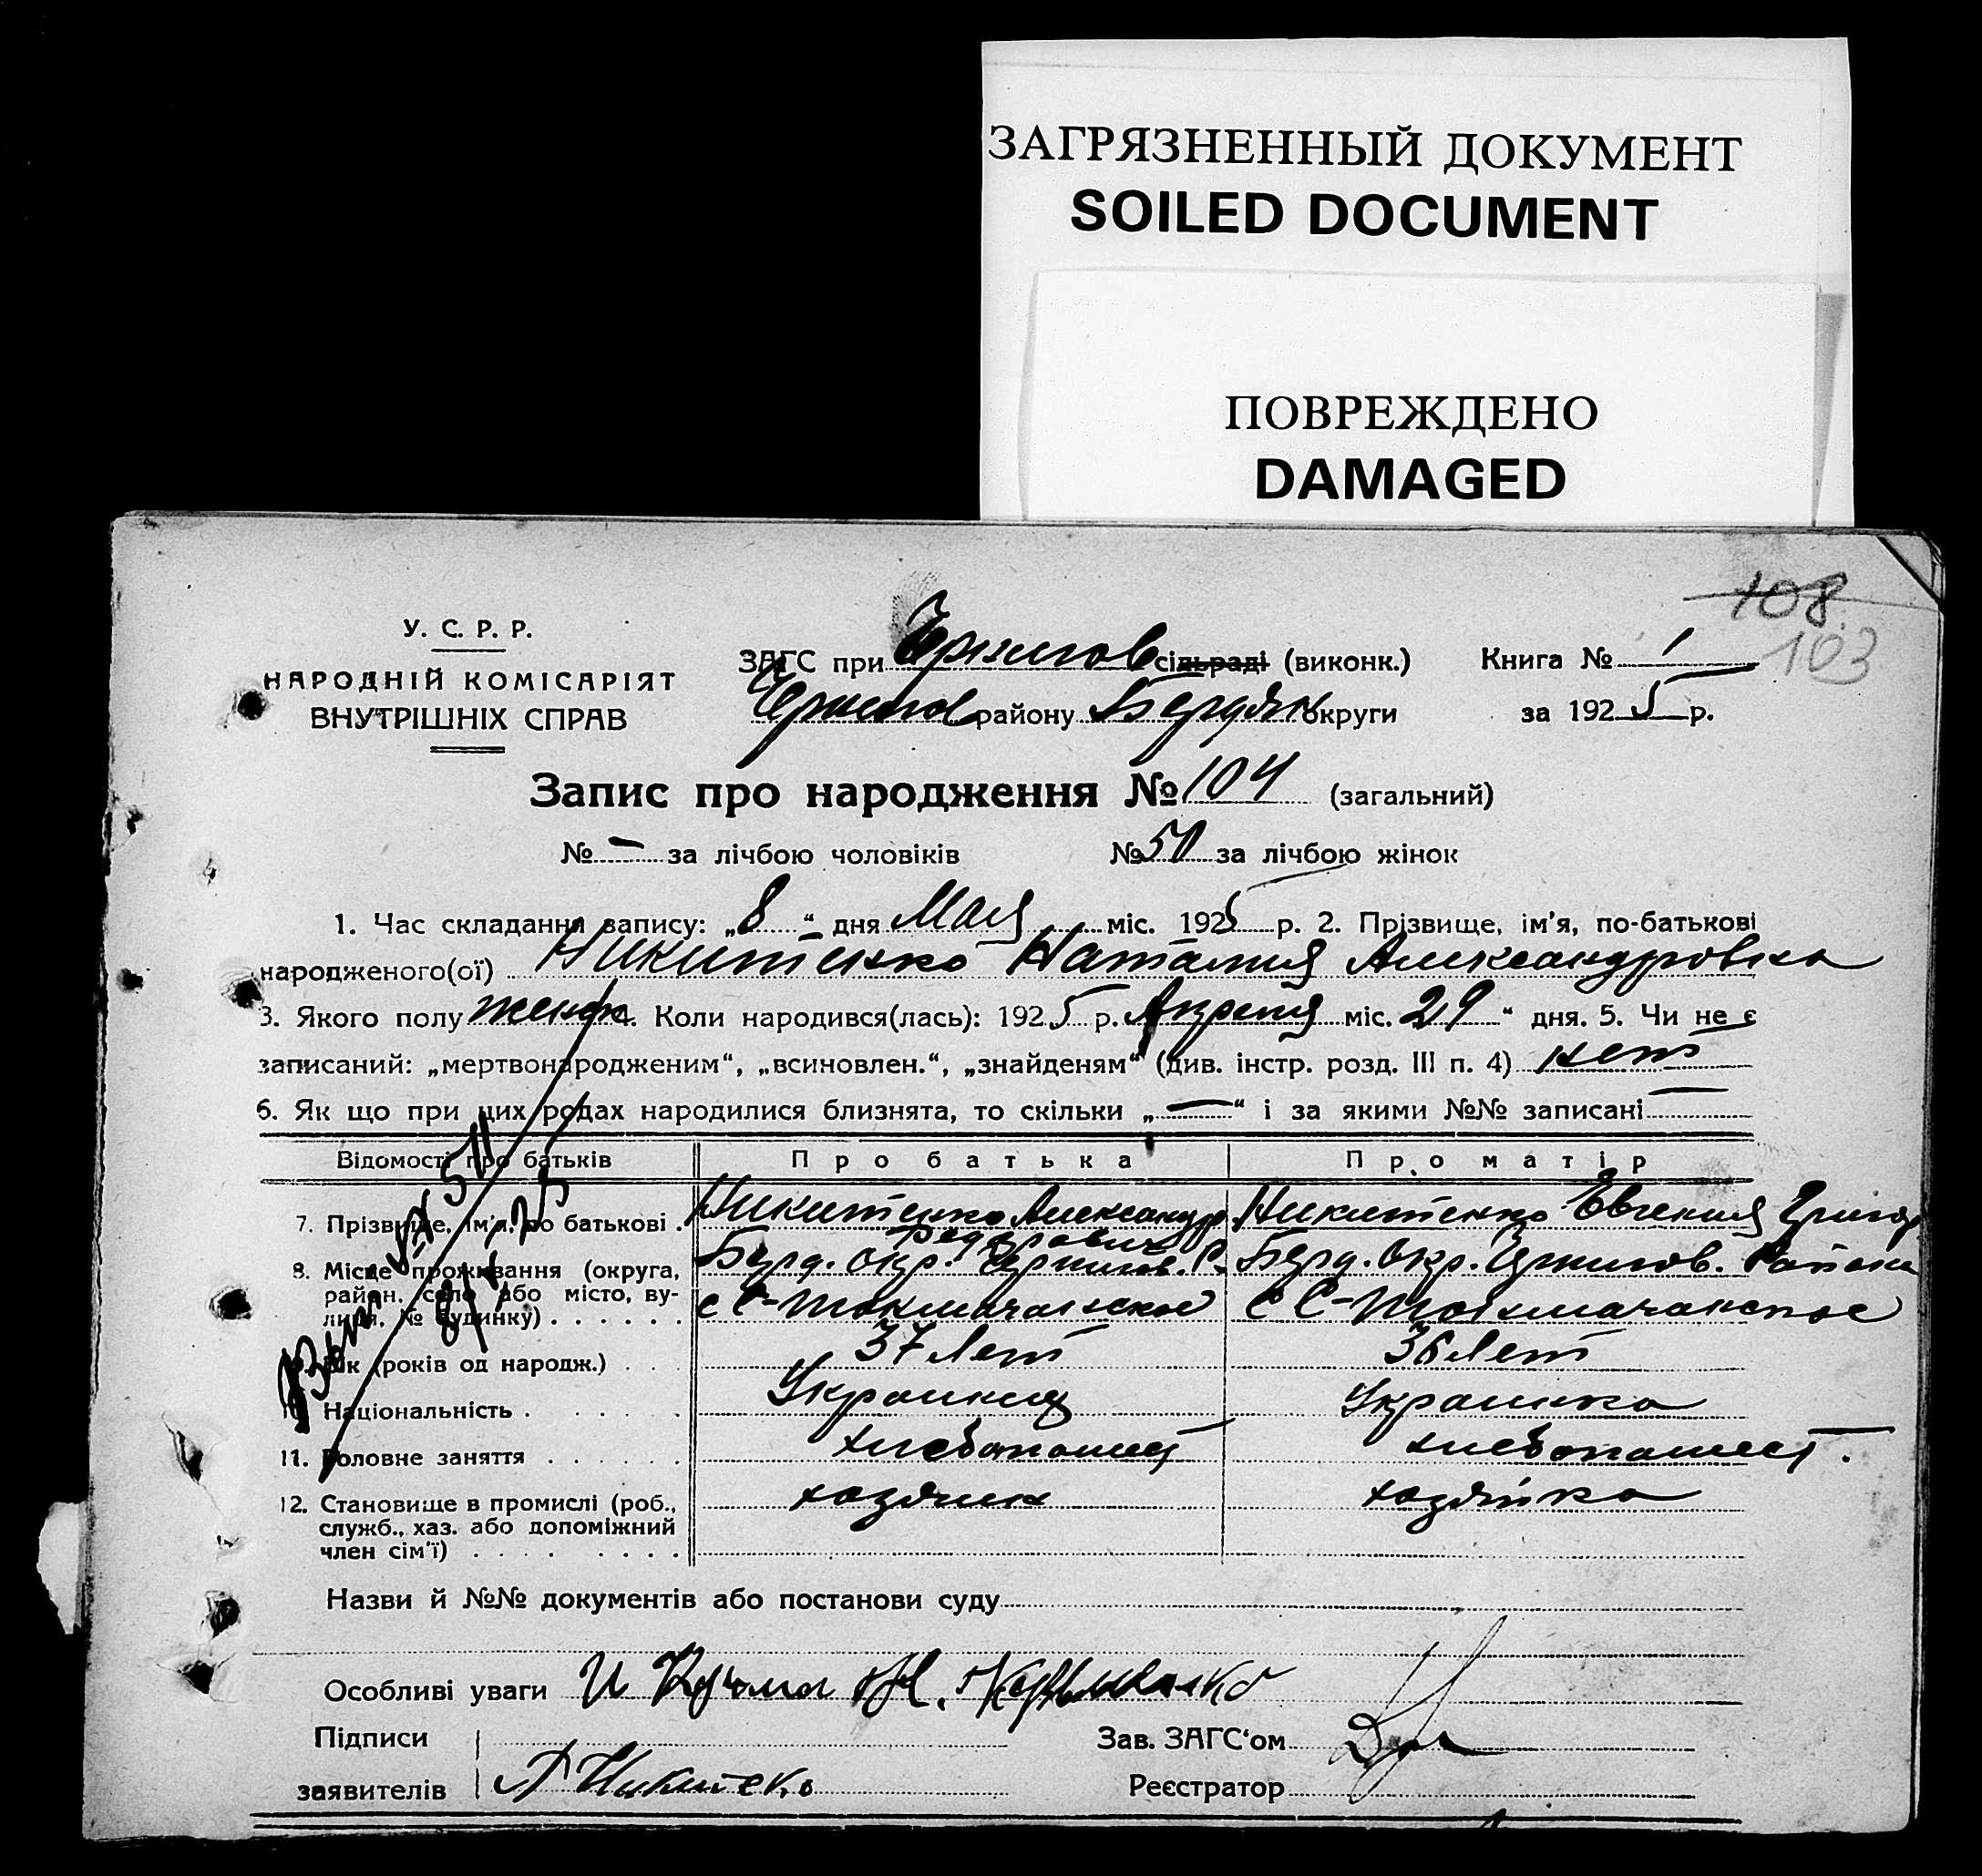 ЗАГРЯЗНЕННЫЙ ДОКУМЕНТ
SOILED DOCUMENT
ПОВРЕЖДЕНО
DAMAGED
108
103
У. С. Р. Р.
НАРОДНІЙ КОМІСАРІЯТ
ВНУТРІШНІХ СПРАВ
ЗАГС при Чернигов сільраді (виконк.)
району Бердян округи
Книга № 1
за 1925 р.
Запис про народження № 104 (загальний)
№ — за лічбою чоловіків № 50 за лічбою жінок
1. Час складання запису: „8“ дня Мая міс. 1925 р. 2. Прізвище, ім'я, по-батькові
народженого(ої) Никитенко Наталия Александровна
3. Якого полу женск 4. Коли народився(лась): 1925 р. Апреля міс. 29“ дня. 5. Чи не є
записаний: „мертвонародженим“, „всиновлен.“, „знайденям“ (див. інстр. розд. III п. 4) нет
6. Як що при цих родах народилися близнята, то скільки „—“ і за якими №№ записані —
Відомості про батьків Про батька Про матір
7. Прізвище, ім'я, по батькові . Никитенко Александр Федорович Никитенко Евгения Григор.
8. Місце проживання (округа, район, село або місто, вулиця, № будинку) . . . . . . Берд. Окр. Чернигов. Р. с С-Токмачанское Берд. Окр. Чернигов. Района с С-Токмачанское
9. Вік (років од народж.) . . . 37 лет 36 лет
10. Національність . . . . . . Украинец Украинка
11. Головне заняття . . . . . . хлебопашец хлебопашест.
12. Становище в промислі (роб., служб., хаз. або допоміжний член сім'ї) . . . . . . . . хозяин хозяйка
Назви й №№ документів або постанови суду
Особливі уваги
Підписи
заявителів А Никитеко
Зав. ЗАГС'ом
Реєстратор